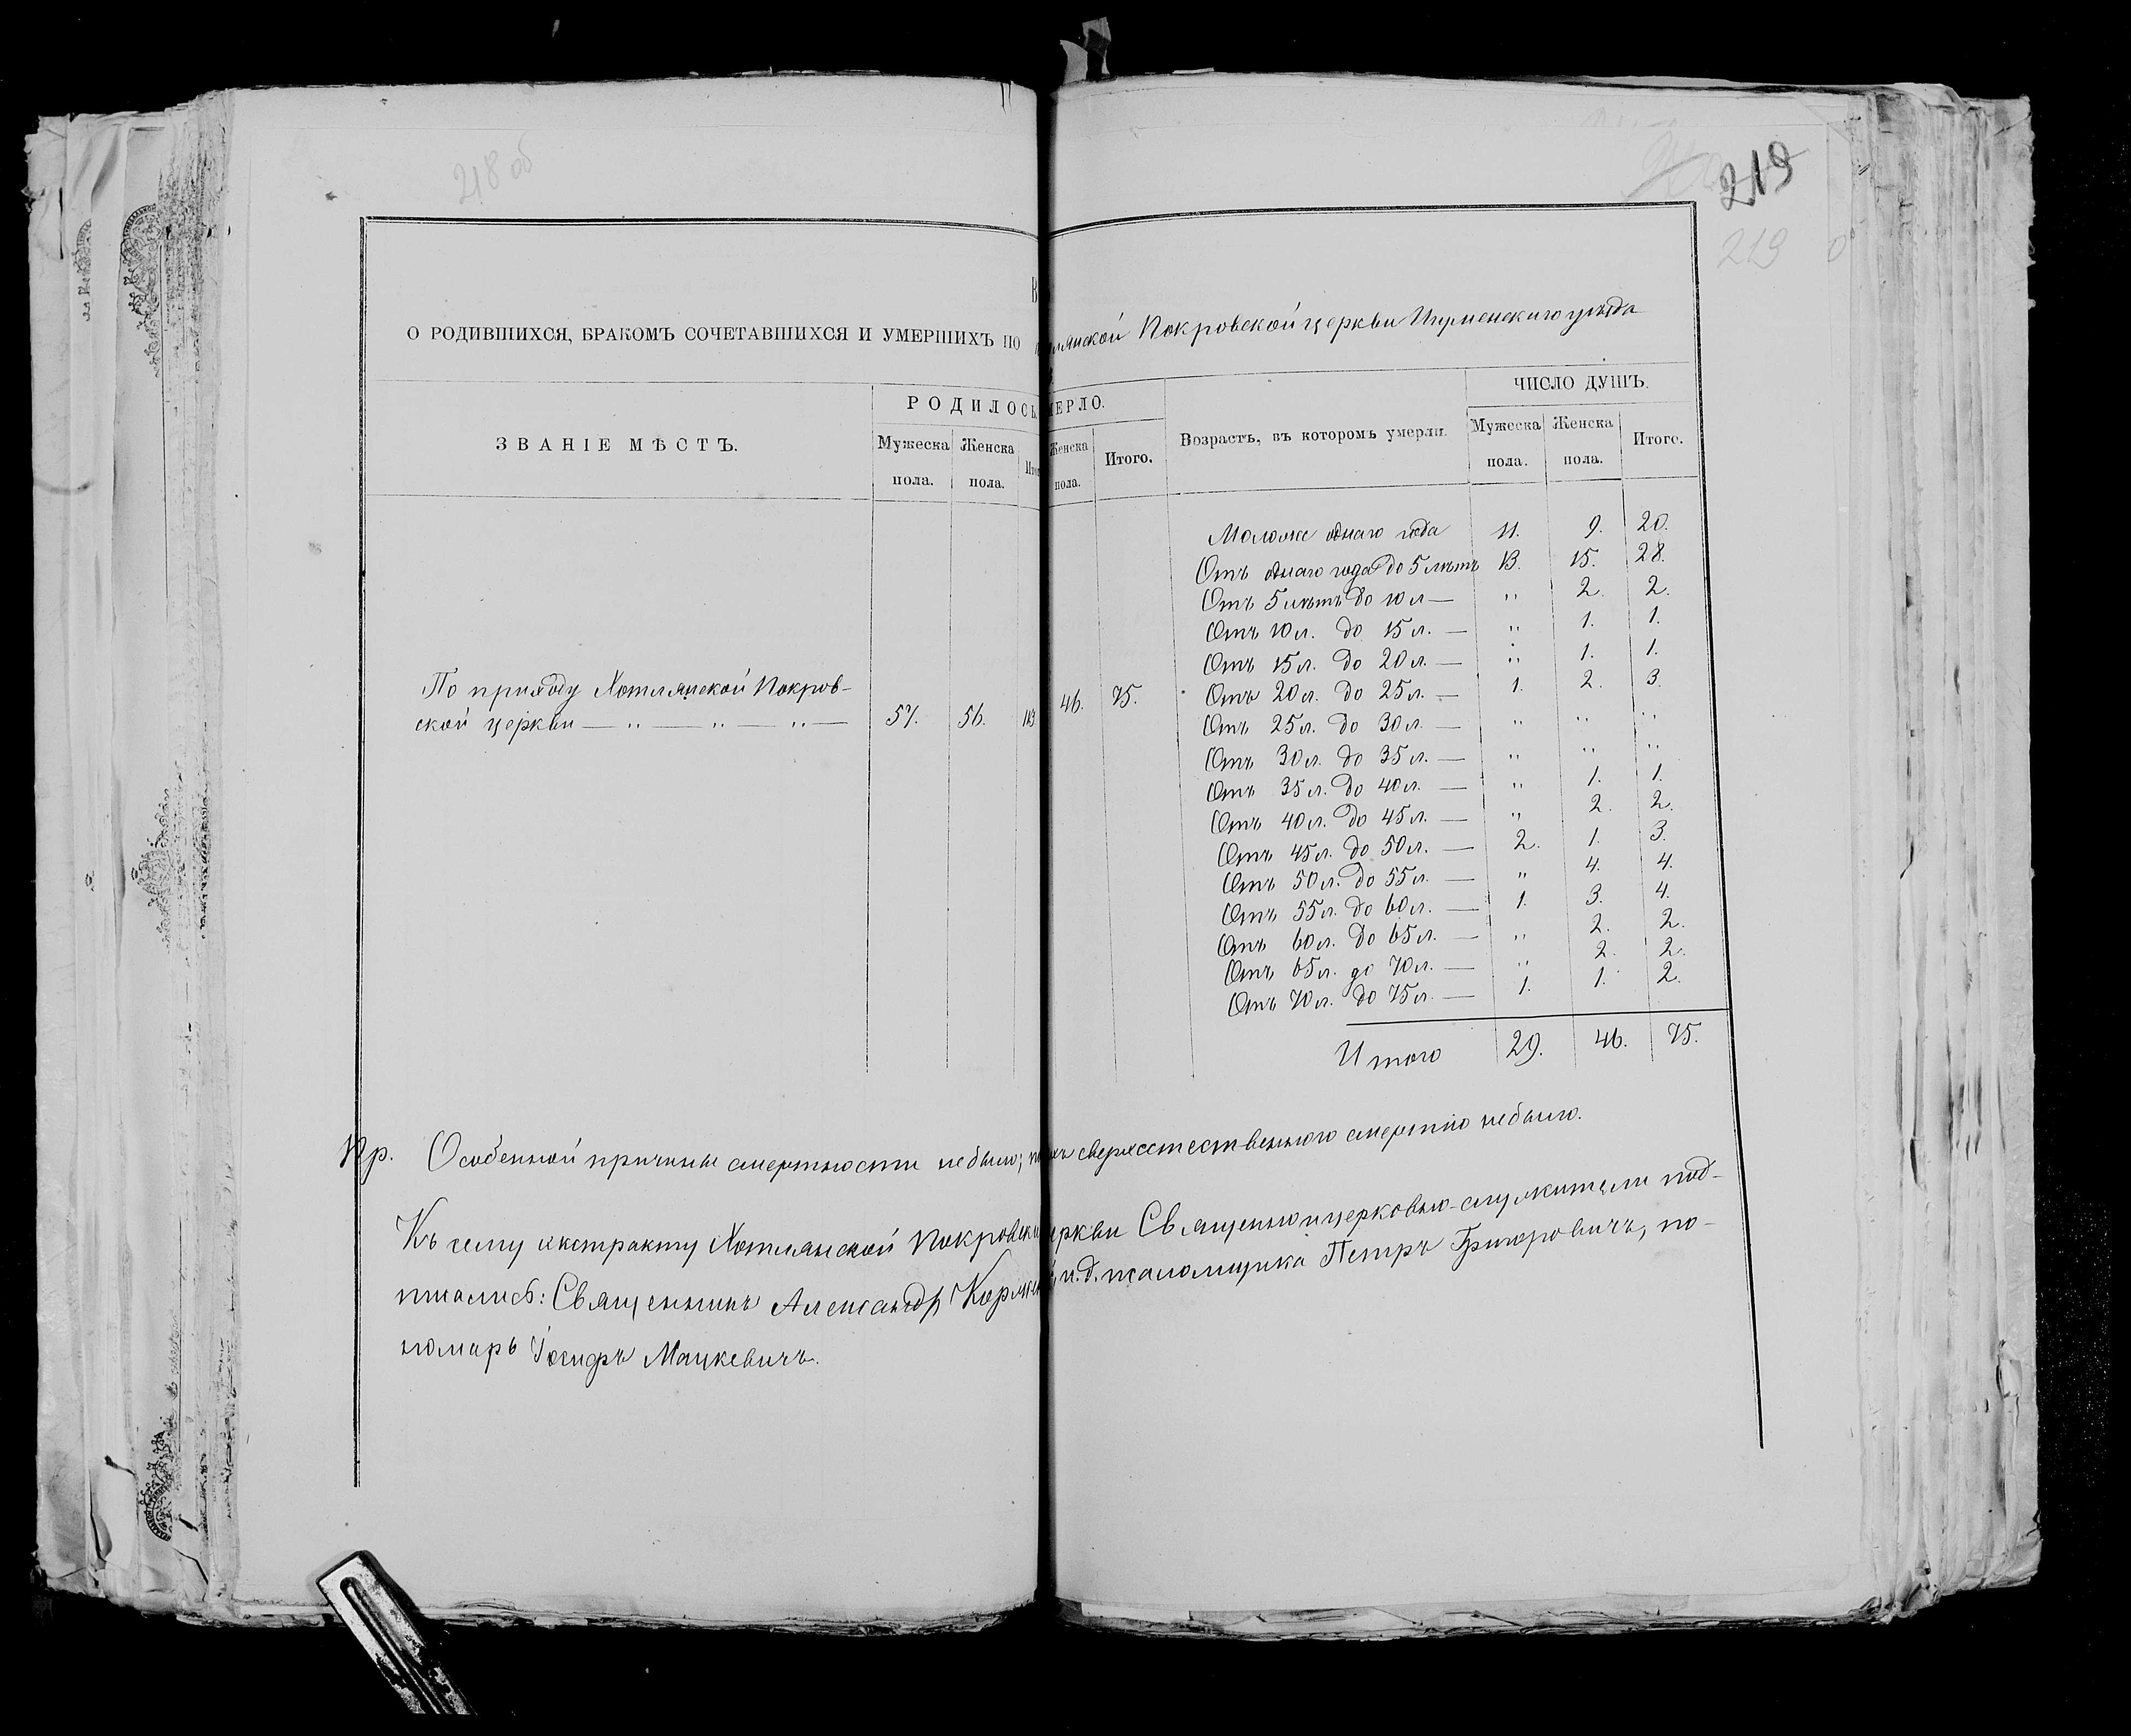 218 об
219
219
В
О РОДИВШИХСЯ, БРАКОМЪ СОЧЕТАВШИХСЯ И УМЕРШИХЪ ПО лянской Покровской церкви Игуменскаго уѣзда
ЗВАНІЕ МѢСТЪ.
РОДИЛОСЬ
Мужеска пола.
Женска пола.
Ито
МЕРЛО.
Женска пола.
Итого.
Возрастъ, въ которомъ умерли.
ЧИСЛО ДУШЪ.
Мужеска пола.
Женска пола.
Итого.
По приходу Хотлянской Покров-
ской церкви — „ — „ — „ — 57. 56. 113 46. 75.
Моложе однаго года 11. 9. 20.
Отъ однаго года до 5 лѣтъ 13. 15. 28.
Отъ 5 лѣтъ до 10 л — „ 2. 2.
Отъ 10 л. до 15 л. — „ 1. 1.
Отъ 15 л. до 20 л. — „ 1. 1.
Отъ 20 л. до 25 л. — 1. 2. 3.
Отъ 25 л. до 30 л. — „ „ „
Отъ 30 л. до 35 л. — „ „ „
Отъ 35 л. до 40 л. — „ 1. 1.
Отъ 40 л. до 45 л. — „ 2. 2.
Отъ 45 л. до 50 л. — 2. 1. 3.
Отъ 50 л. до 55 л. — „ 4. 4.
Отъ 55 л. до 60 л. — 1. 3. 4.
Отъ 60 л. до 65 л. — „ 2. 2.
Отъ 65 л. до 70 л. — „ 2. 2.
Отъ 70 л. до 75 л. — 1. 1. 2.
Итого 29. 46. 75.
Пр. Особенной причины смертности небыло; сверхестественного смертію небыло.
Къ сему екстракту Хотлянской Покровской церкви Священно и церковно-служители под-
писались: Священникъ Александр и. д. псаломщика Петръ Григоровичъ, по-
номарь Іосифъ Мацкевичъ.